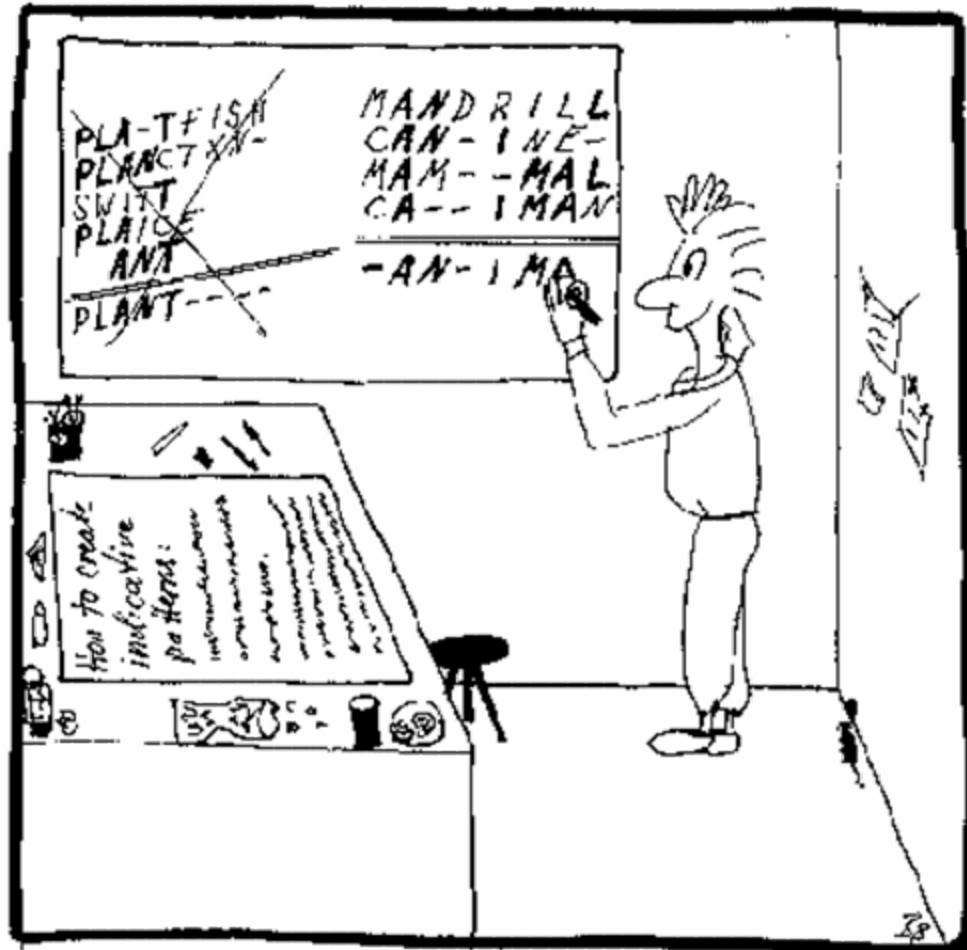 PLA-TFISH
PLANCTXN-
SWIFT
PLAICE
ANT
PLANT----
MANDRILL
CAN-INE-
MAM--MAL
CA--IMAN
-AN-IMA
How to create
indicative
patterns: